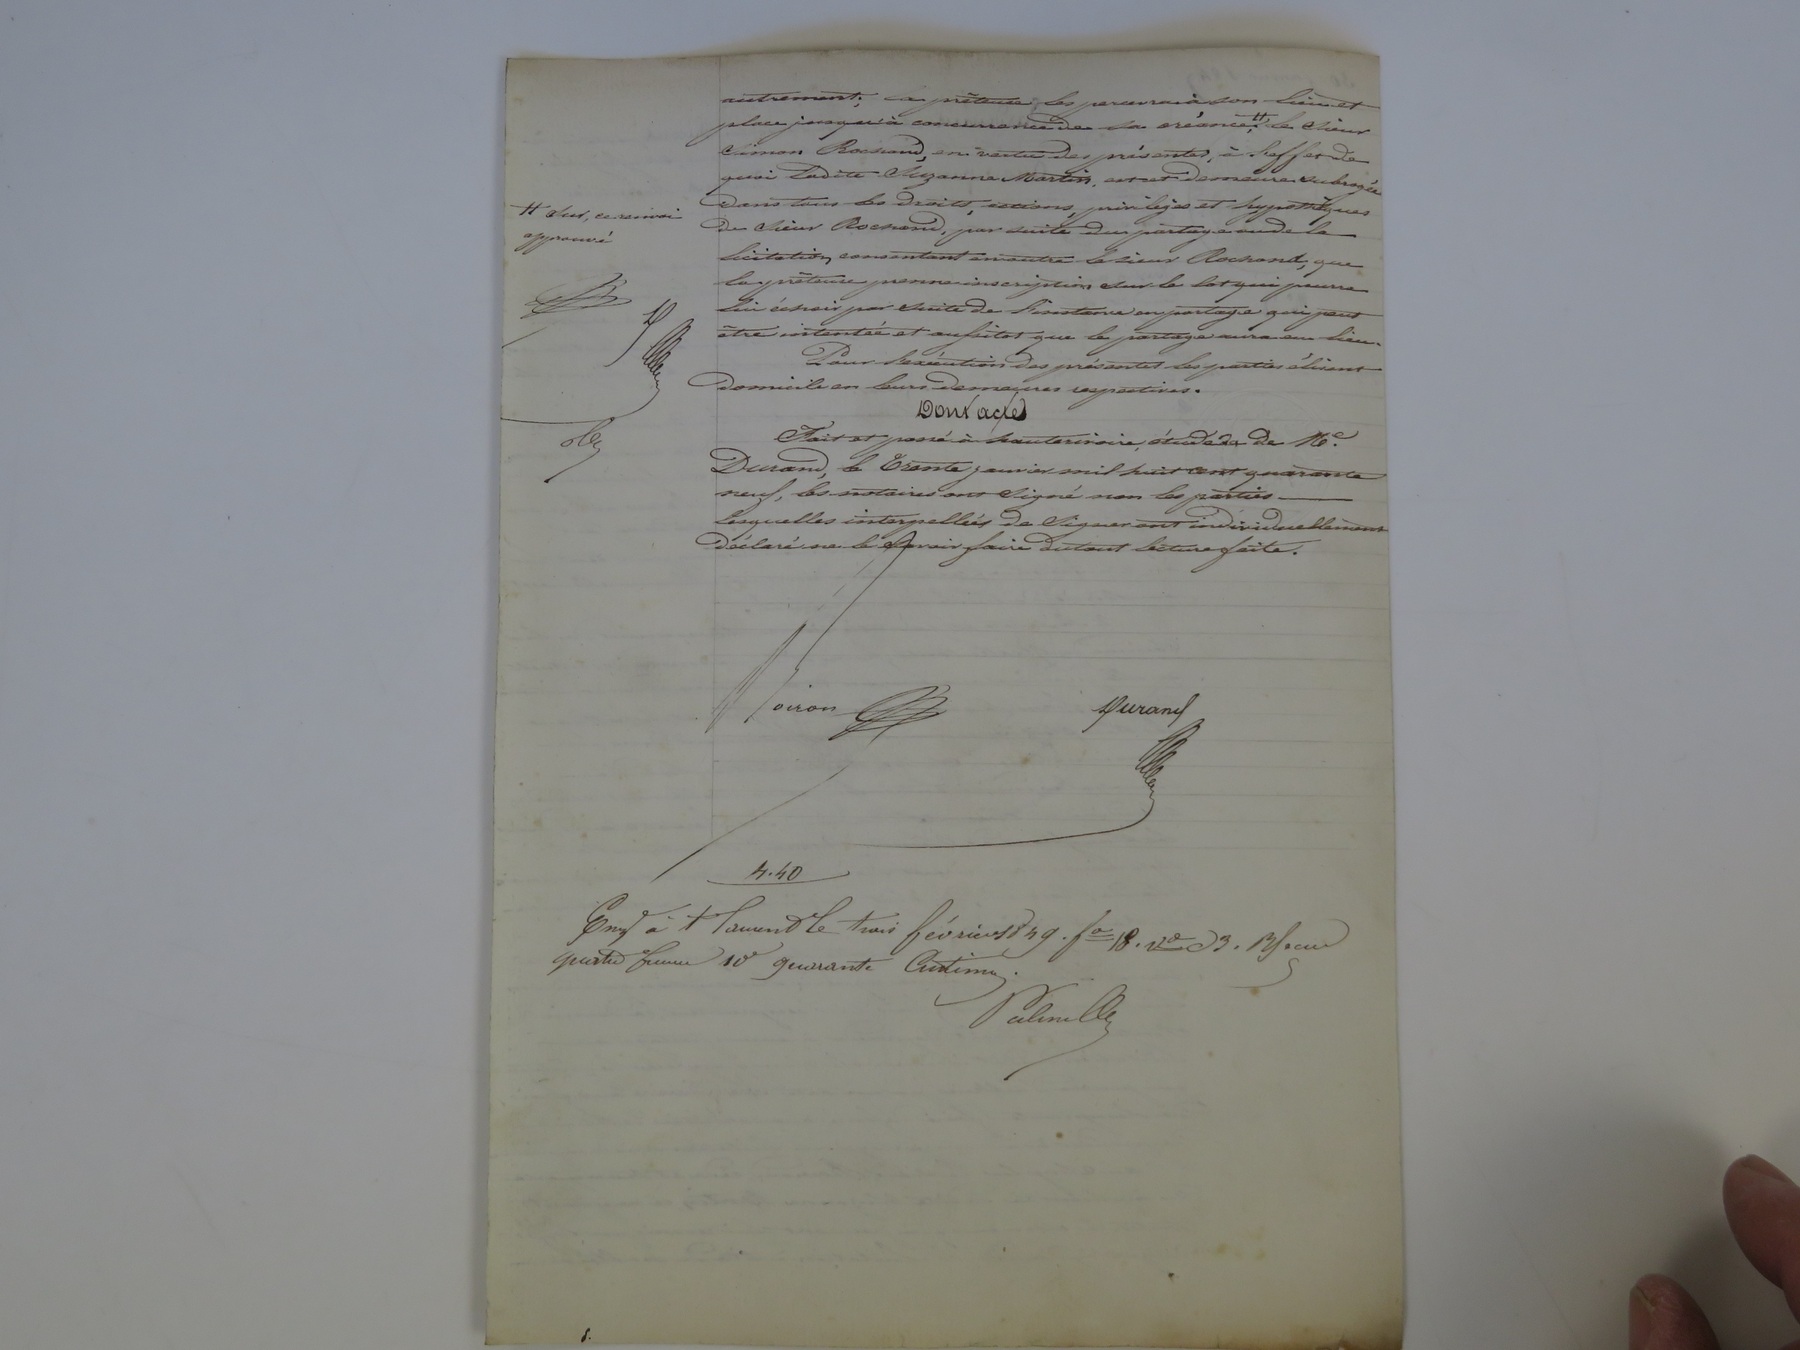 autrement; la prêteuse, les percevrai à son lieu et
place jusqu'à concurrence de sa créance, # le sieur
Simon Rochand, en vertu des présentes, à l'effet de
quoi ladite Suzanne Martin, est et demeure subrogée
dans tous les droits, actions, privilèges et hypothèques
du sieur Rochand, par suite du partage ou de la
licitation, consentant en outre le sieur Rochand, que
la prêteuse prenne inscription sur le lot qui pourra
lui échoir par suite de l'instance en partage qui peut
être intentée et aussitot que le partage aura eu lieu.
Pour l'exécution des présentes les parties élisent
domicile en leurs demeures respectives.
Dont acte
Fait et passé à hauterivoire, étude de Me.
Durand, le trente janvier mil huit cent quarante
neuf, les notaires ont signé non les parties
lesquelles interpellées de signer ont individuellement
déclaré ne le savoir faire du tout lecture faite.
# ce renvoi
approuvé
D
Noiron
Durand
4.40
Engé à St Laurent le trois février 1849. fo 18. vo C3. Reçu
quatre francs 10e quarante Centimes.